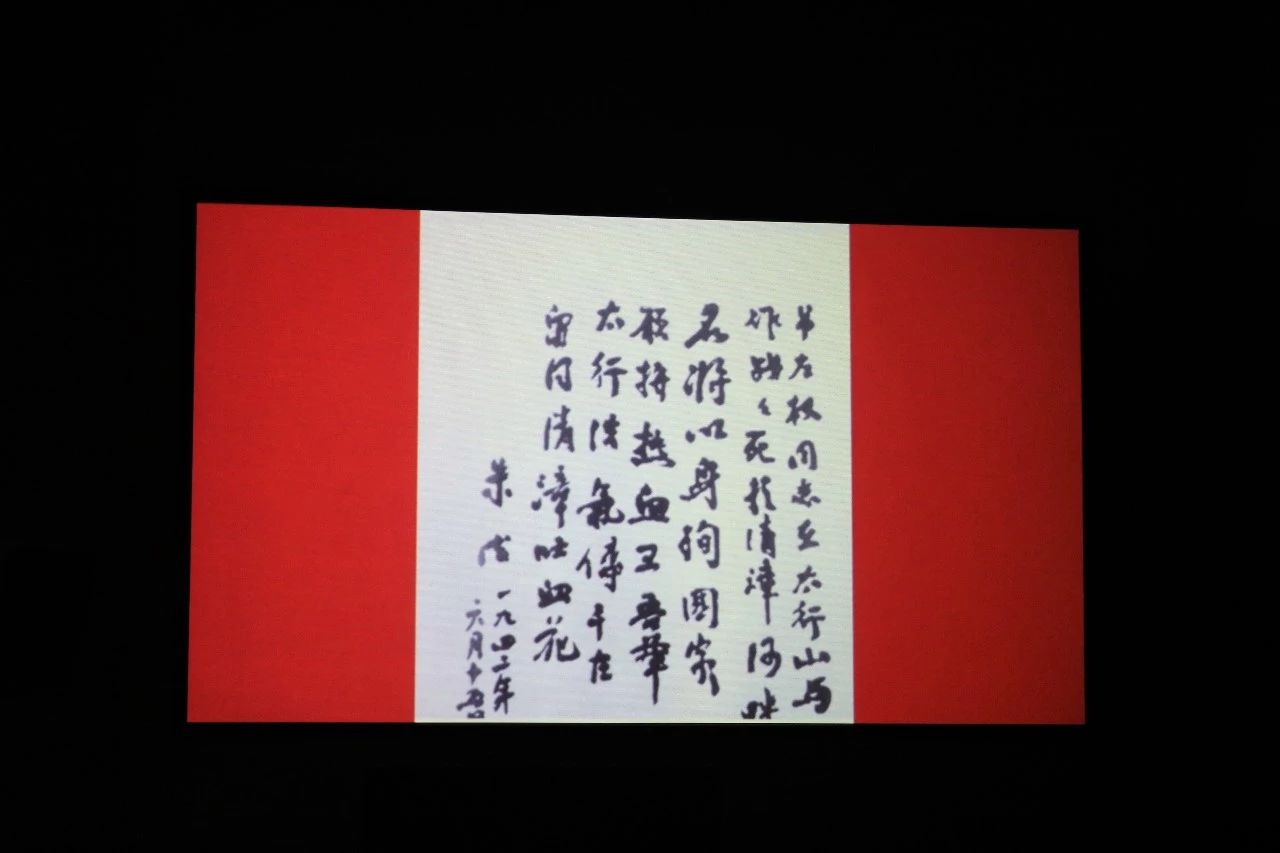 吊左权同志在太行山与
作战々死於清漳河畔
名将以身殉國家
愿拼热血卫吾華
太行浩氣傳千古
留得清漳吐血花
朱德
一九四二年
六月十五日